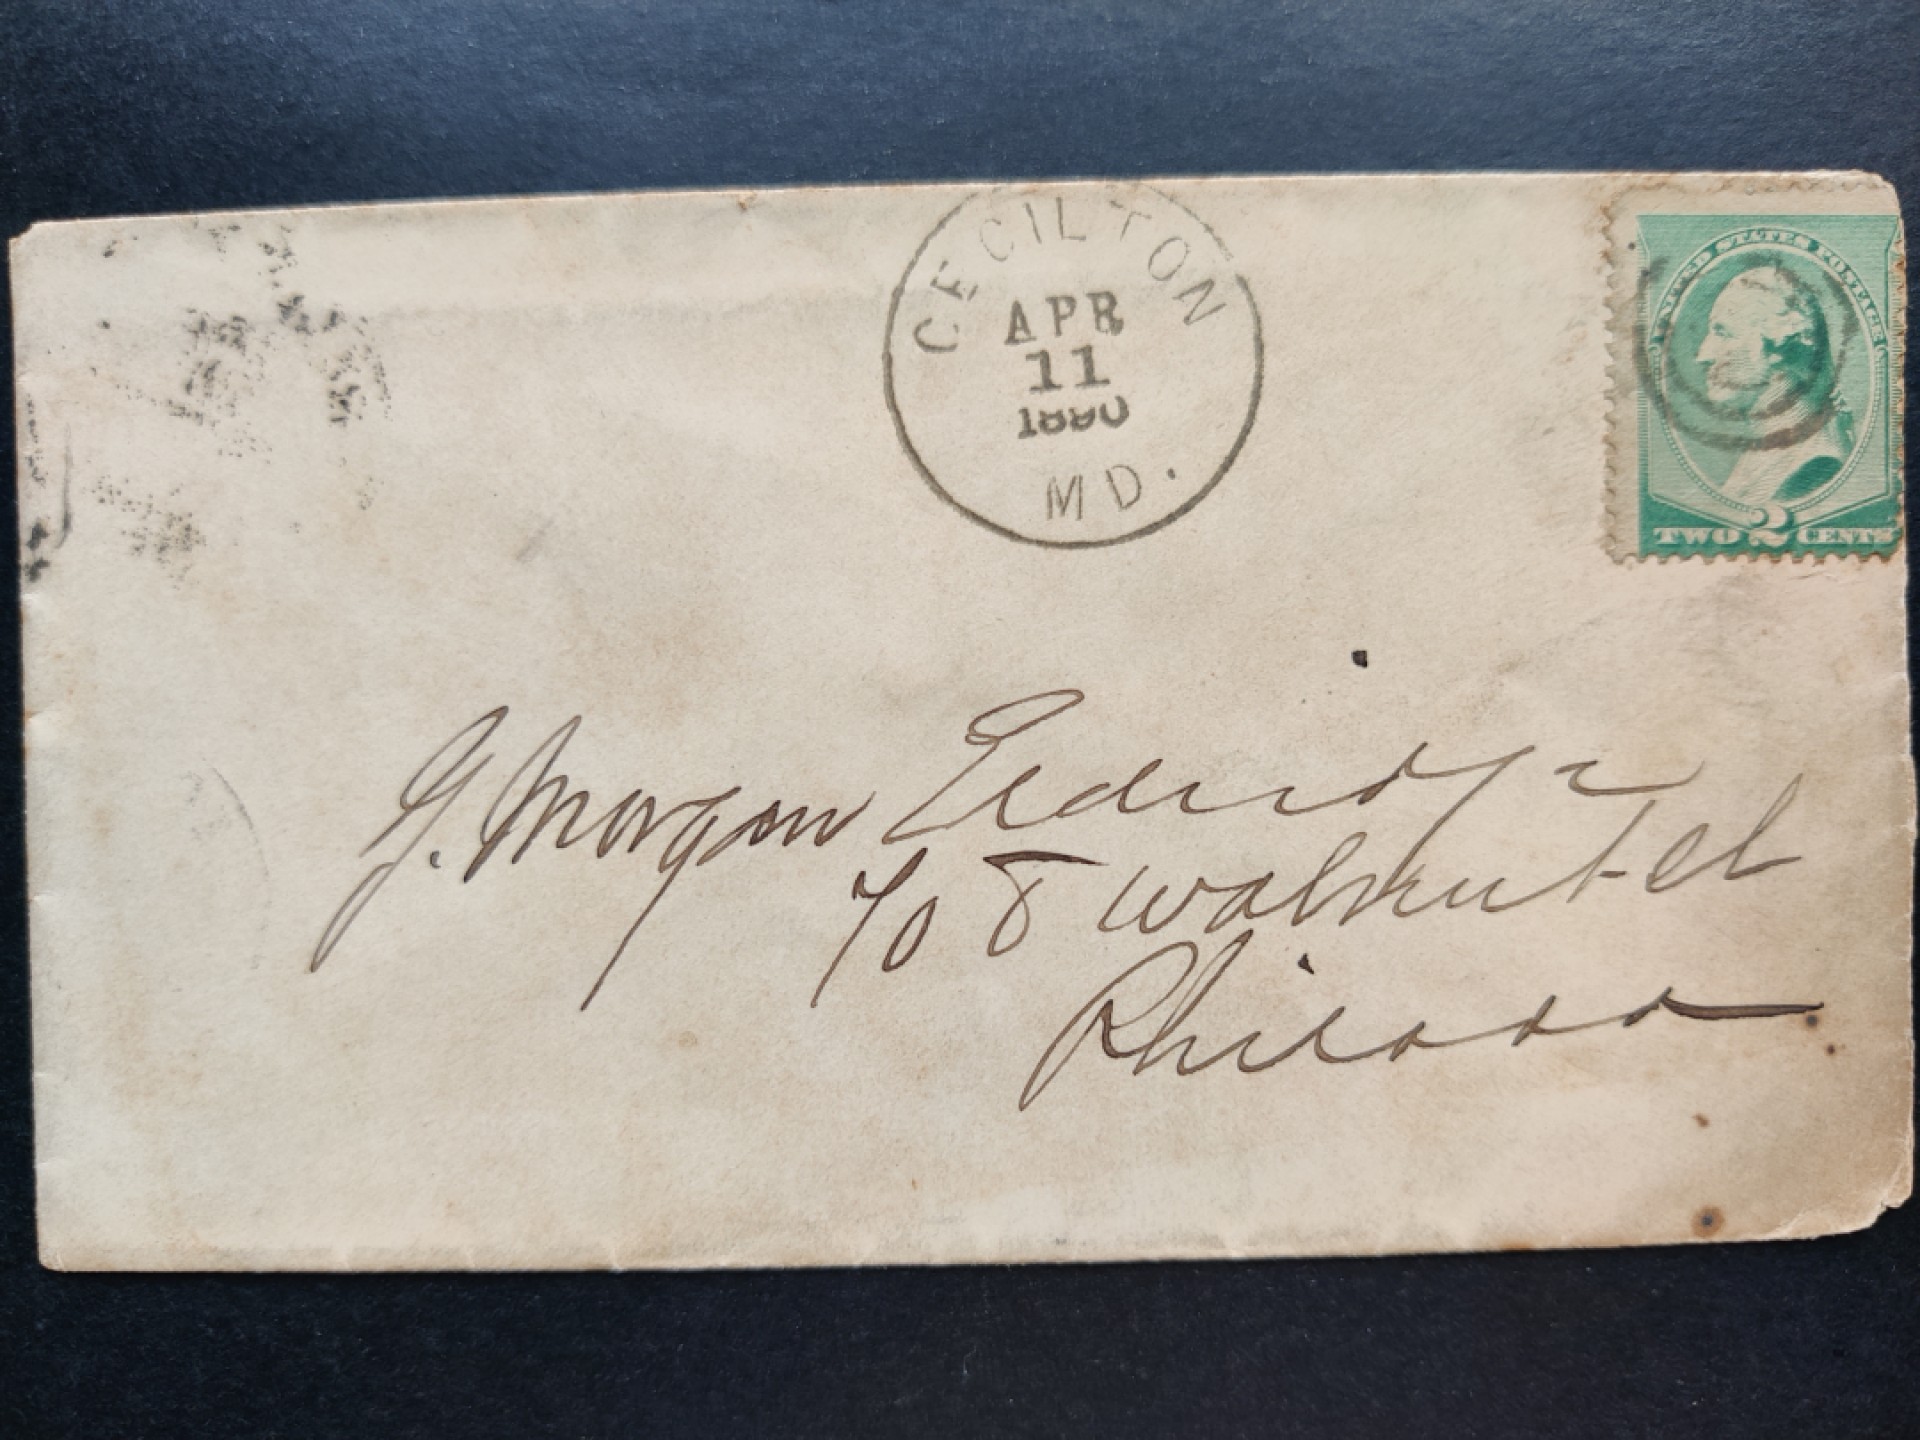 CECILTON
APR
11
1890
MD.
UNITED STATES POSTAGE
TWO 2 CENTS
J. Morgan Eldridge
708 Walnut St
Philada